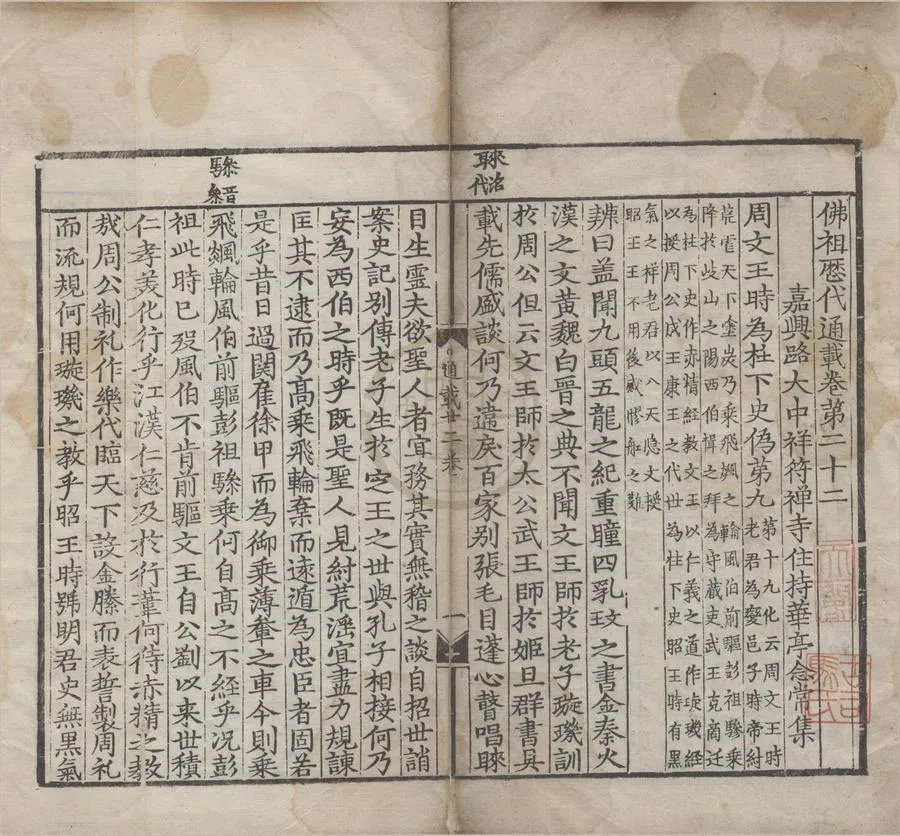 佛祖歷代通載卷第二十二
嘉興路大中祥符禅寺住持華亭念常集
周文王時為柱下史偽第九
第十九化云周文王時
老君為爕邑子時帝紂
荒霪天下塗炭乃乘飛飈之輪風伯前驅彭祖驂乘
降於歧山之陽西伯惲之拜為守藏吏武王克商迁
為柱下史作赤情經教文王以仁義之道作琁璣經
以授周公成王康王之代世為柱下史昭王時有黑
氣之祥老君以八天隐文授
昭王王不用後感膠舡之難
辨曰盖聞九頭五龍之紀重瞳四乳玟之書金秦火
漢之文黄魏白晉之典不聞文王師於老子璇璣訓
於周公但云文王師於太公武王師於姬旦群書具
載先儒盛談何乃違戾百家别張毛目蓬心瞽唱聎
通載廿二卷
一
目生靈夫欲聖人者宜務其實無稽之談自招世誚
案史記别傳老子生於㝎王之世與孔子相接何乃
妄為西伯之時乎既是聖人見紂荒滛宜盡力規諫
匡其不逮而乃髙乘飛輪棄而逺遁為忠臣者固若
是乎昔日過関隺徐甲而為御乘薄軬之車今則乘
飛飈輪風伯前驅彭祖驂乗何自髙之不經乎况彭
祖此時已殁風伯不肯前驅文王自公劉以来世積
仁孝美化行乎江漢仁慈及於行葦何待赤精之教
㦲周公制礼作樂代臨天下設金縢而表誓製周礼
而流規何用璇璣之教乎昭王時號明君史無黒氣